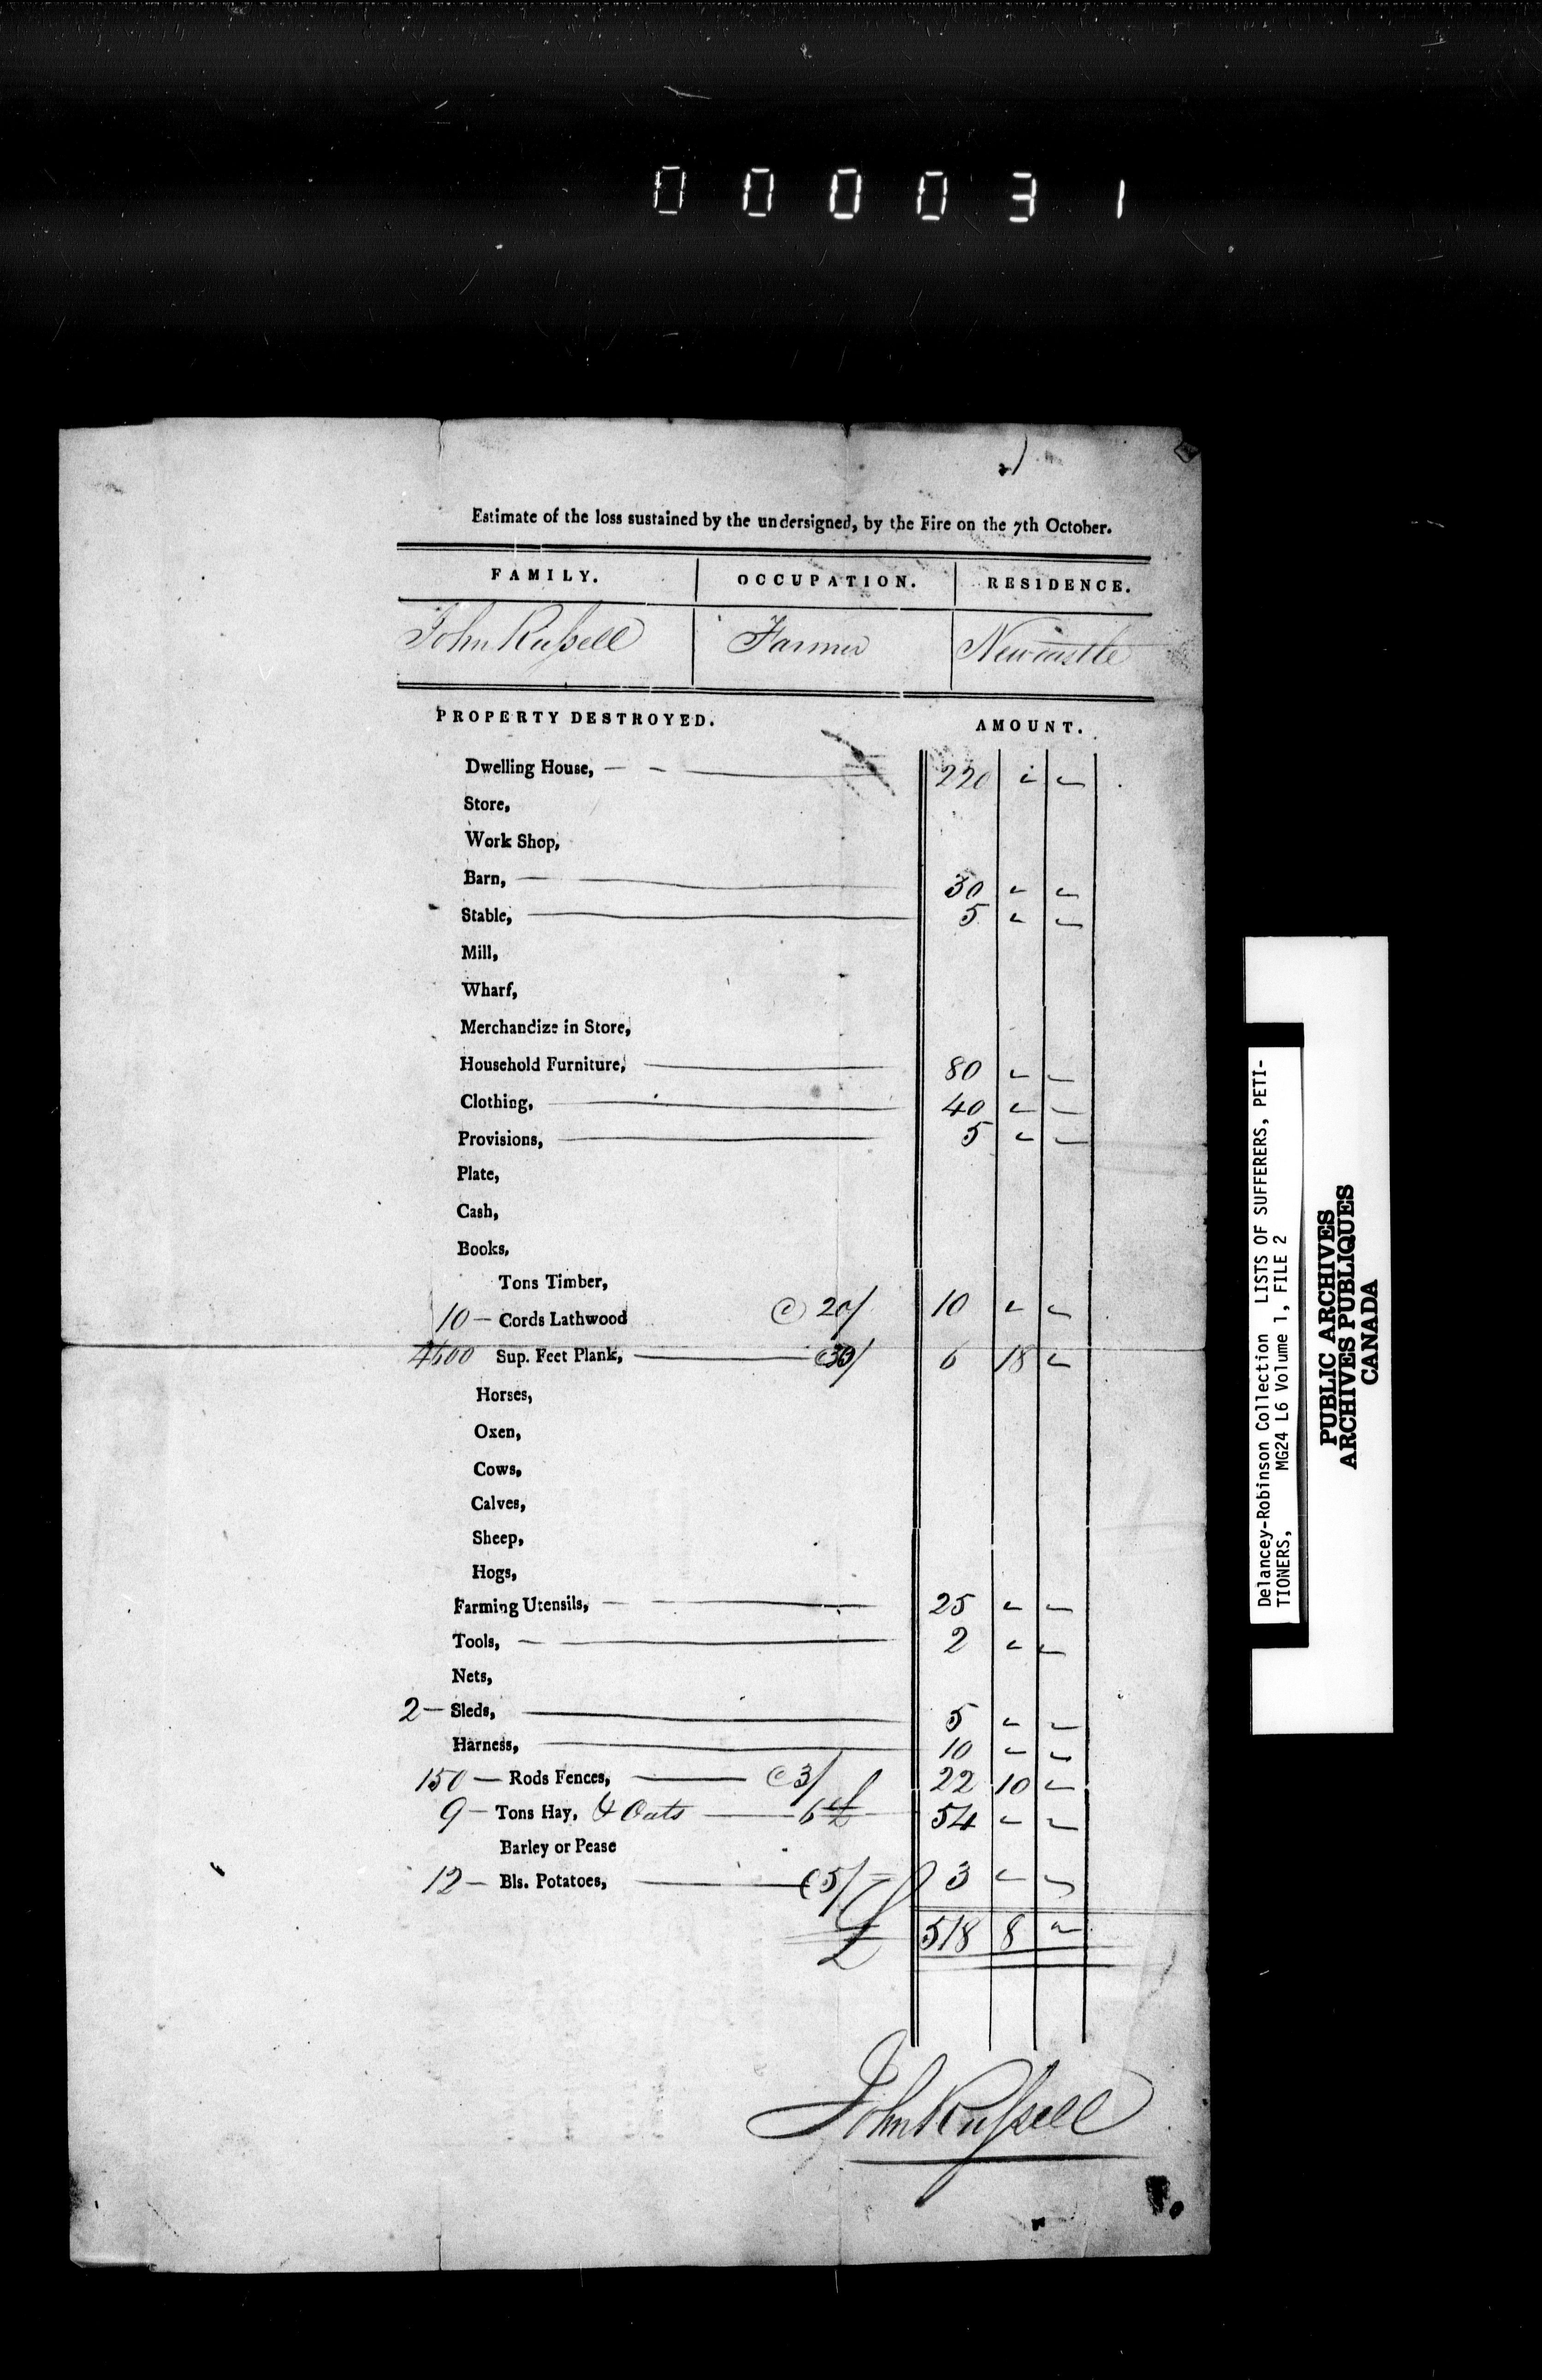 0 0 0 0 3 1
Estimate of the loss sustained by the undersigned, by the Fire on the 7th October.
FAMILY. OCCUPATION. RESIDENCE.
John Rufsell Farmer Newcastle
PROPERTY DESTROYED. AMOUNT.
Dwelling House, — - — 220 " "
Store,
Work Shop,
Barn, — 30 " "
Stable, — 5 " "
Mill,
Wharf,
Merchandize in Store,
Household Furniture, — 80 " "
Clothing, — 40 " "
Provisions, — 5 " "
Plate,
Cash,
Books,
Tons Timber,
10 — Cords Lathwood @ 20/ 10 " "
4600 Sup. Feet Plank, — @30/ 6 18 "
Horses,
Oxen,
Cows,
Calves,
Sheep,
Hogs,
Farming Utensils, — 25 " "
Tools, — 2 " "
Nets,
2 — Sleds, — 5 " "
Harness, — 10 " "
150 — Rods Fences, — @3/ 22 10 "
9 — Tons Hay, & Oats — 6£ 54 " "
Barley or Pease
12 — Bls. Potatoes, — @5/ 3 " "
£ 518 8 "
John Rufsell
Delancey-Robinson Collection LISTS OF SUFFERERS, PETI-
TIONERS, MG24 L6 Volume 1, FILE 2
PUBLIC ARCHIVES
ARCHIVES PUBLIQUES
CANADA